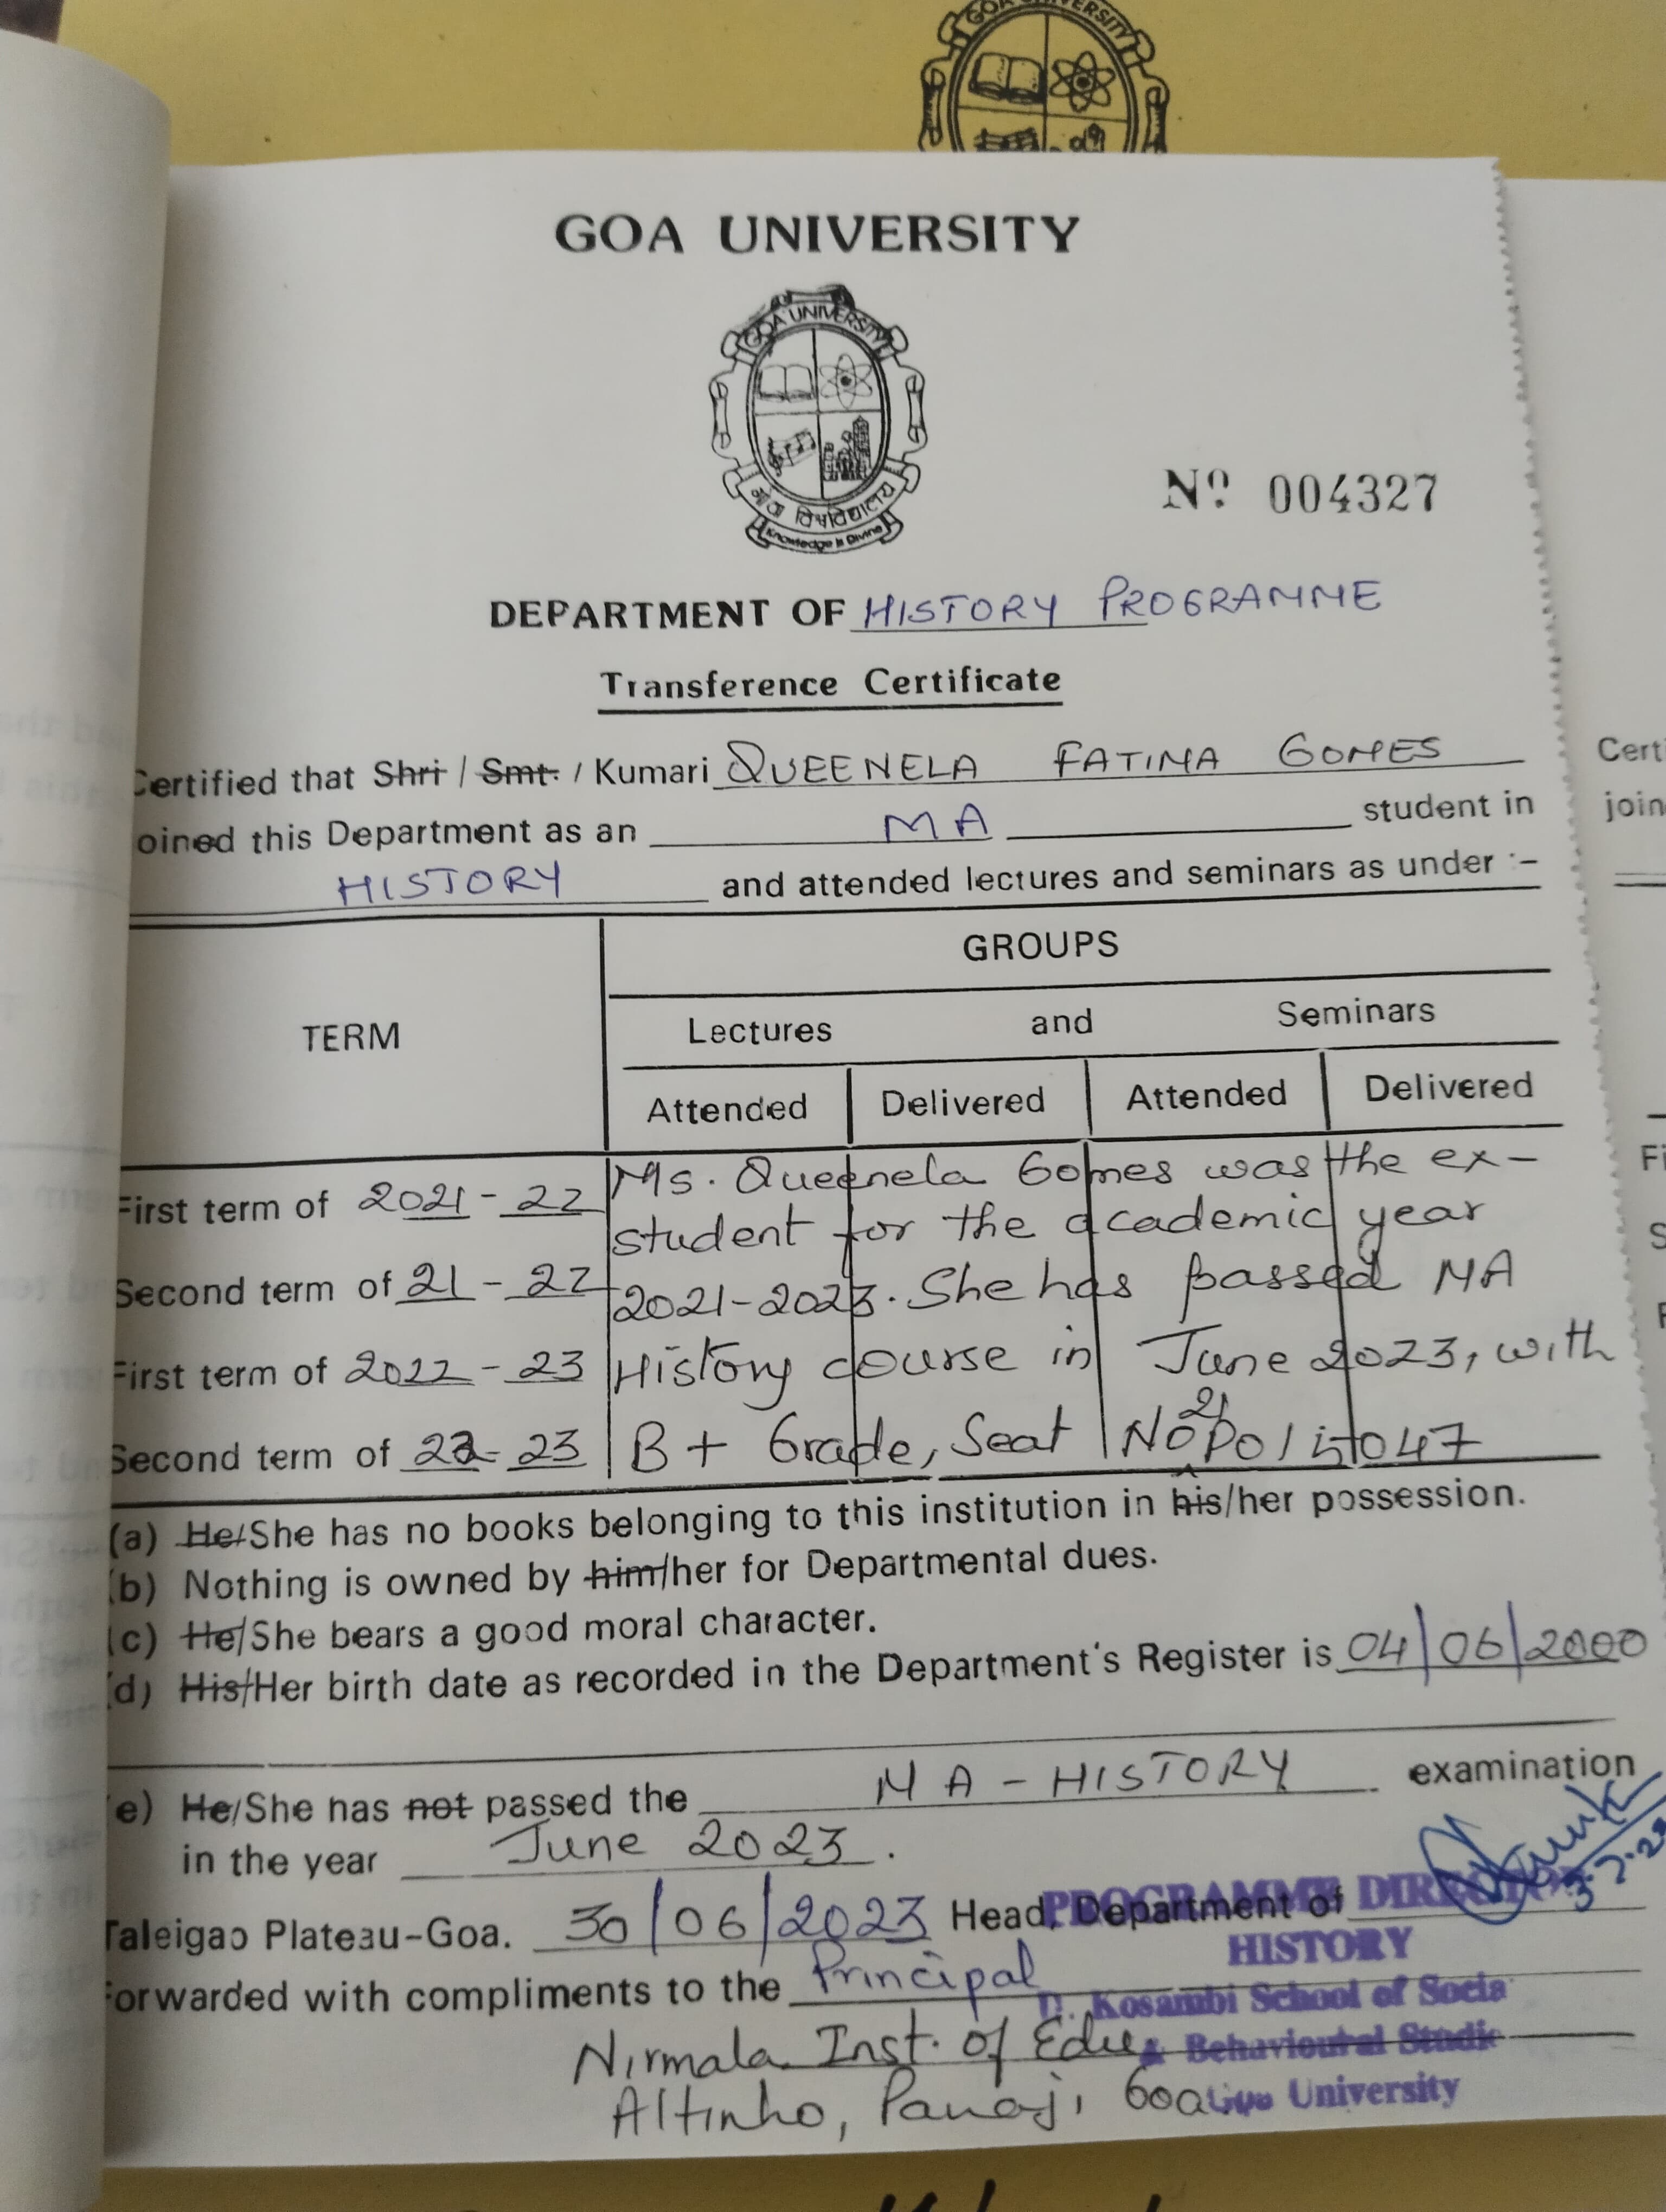 GOA UNIVERSITY
GOA UNIVERSITY
GOA UNIVERSITY
गोंय विश्वविद्यालय
Knowledge is Divine
Nº 004327
DEPARTMENT OF HISTORY PROGRAMME
Transference Certificate
Certified that Shri / Smt. / Kumari QUEENELA FATIMA GOMES
oined this Department as an MA student in
HISTORY and attended lectures and seminars as under :-
GROUPS
TERM
Lectures and Seminars
Attended Delivered Attended Delivered
First term of 2021-22 Ms. Queenela Gomes was the ex-
student for the academic year
Second term of 21-22 2021-2023. She has passed MA
First term of 2022-23 History course in June 2023, with
Second term of 22-23 B+ Grade, Seat No 21P015047
(a) He/She has no books belonging to this institution in his/her possession.
(b) Nothing is owned by him/her for Departmental dues.
(c) He/She bears a good moral character.
(d) His/Her birth date as recorded in the Department's Register is 04/06/2000
e) He/She has not passed the MA-HISTORY examination
in the year June 2023.
3.7.23
Taleigao Plateau-Goa. 30/06/2023 Head, Department of
PROGRAMME DIRECTOR
HISTORY
Forwarded with compliments to the Principal
D. Kosambi School of Socia
Nirmala Inst. of Edu
& Behavioural Studie
Altinho, Panaji, Goa.
Goa University
Certi
join